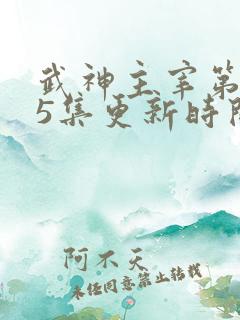 武神主宰第
5集更新时
阿不天
未经同意禁止转载